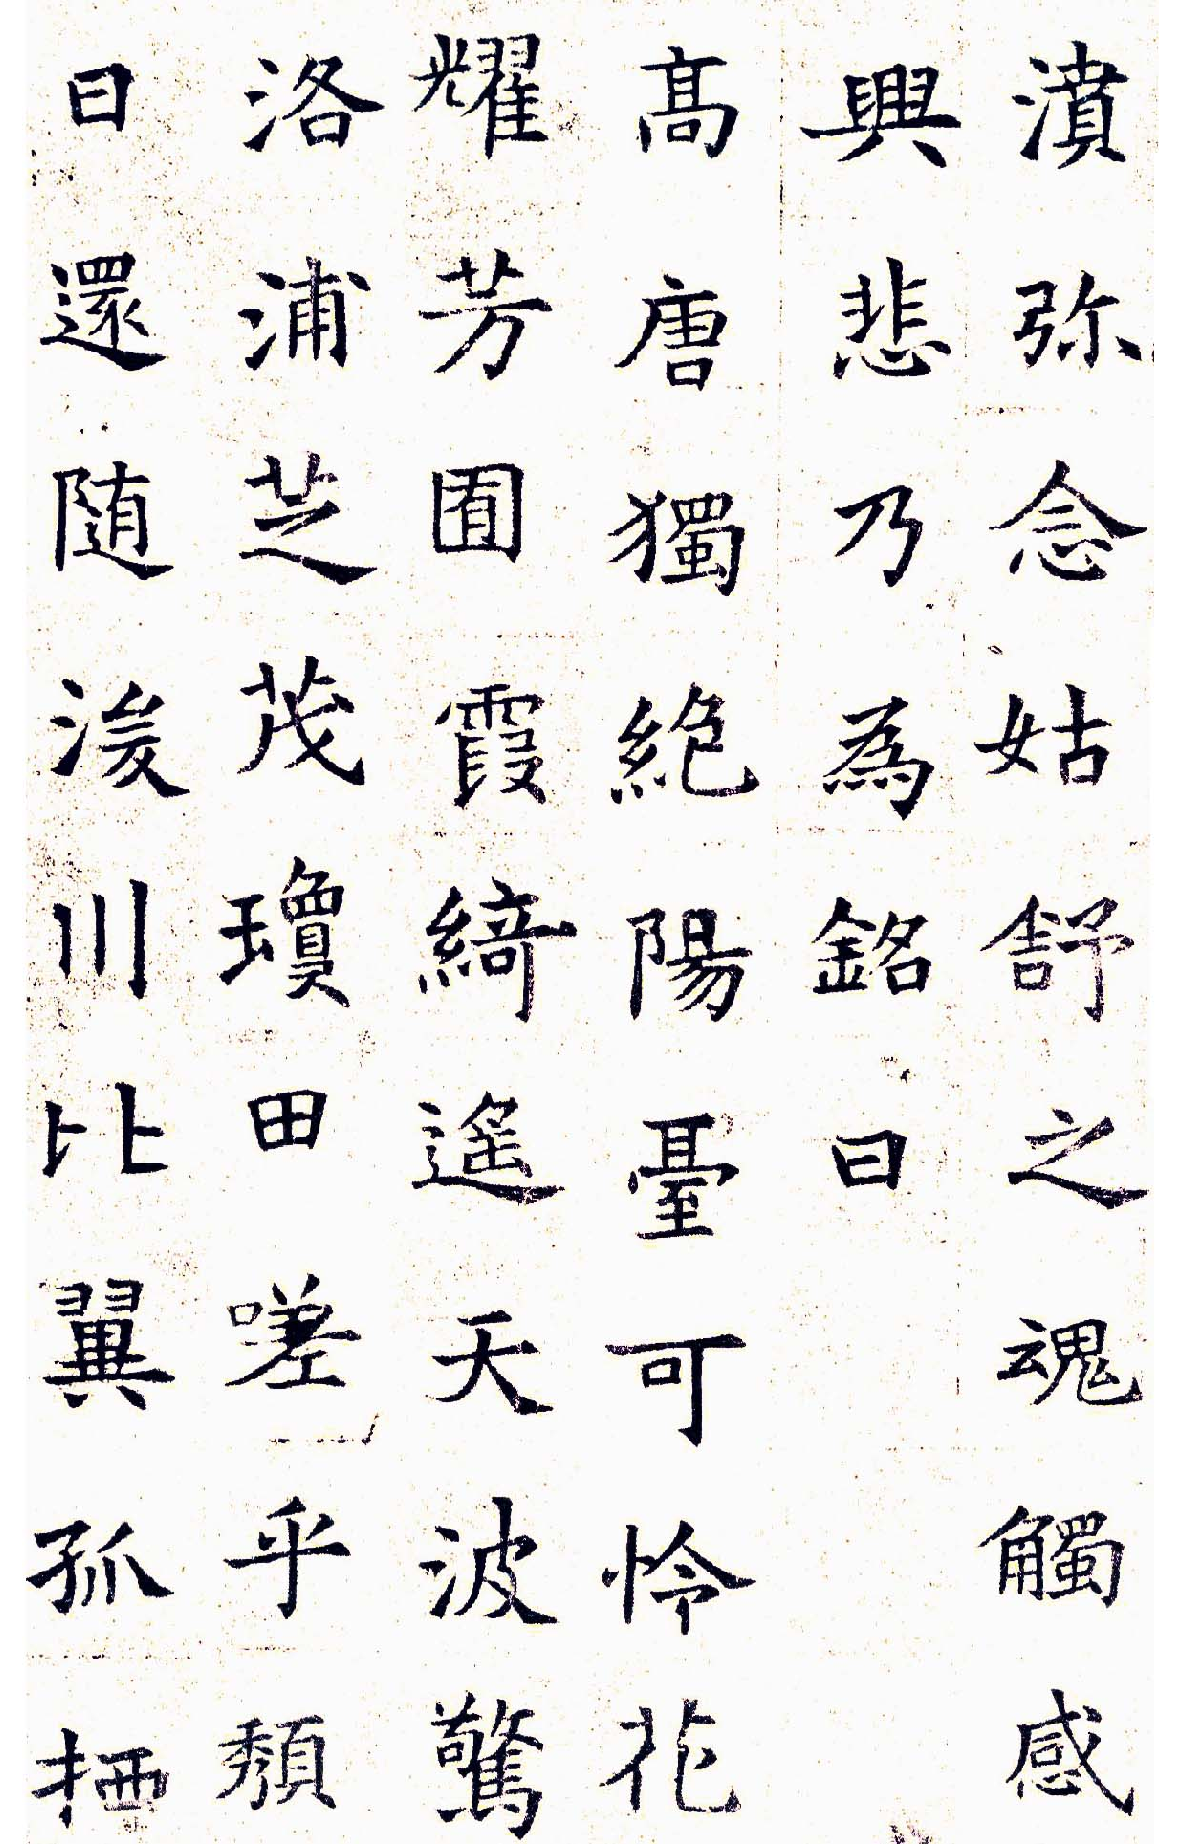 濆弥念姑舒之魂觸感
興悲乃為銘曰
髙唐獨絶陽臺可怜花
耀芳囿霞綺遙天波驚
洛浦芝茂瓊田嗟乎頹
日還随湲川比翼孤栖